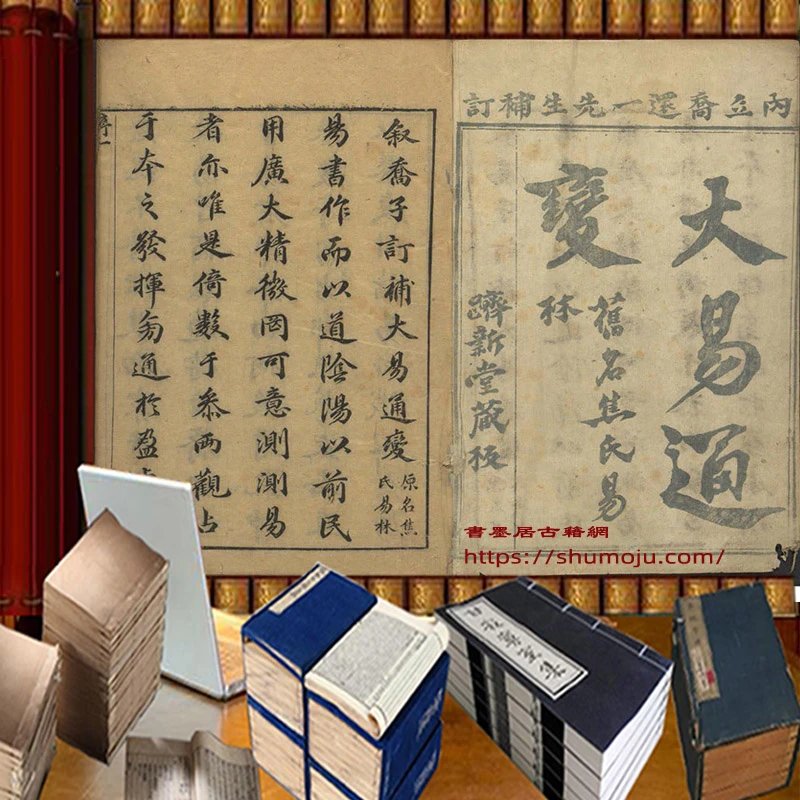 內丘喬還一先生補訂
大易通
變
舊名焦氏易
林
躋新堂藏板
敘喬子訂補大易通變
原名焦
氏易林
易書作而以道陰陽以前民
用廣大精微罔可意測測易
者亦唯是倚數于叅兩觀占
于夲之發揮旁通於盈
序一
書墨居古籍網
https://shumoju.com/